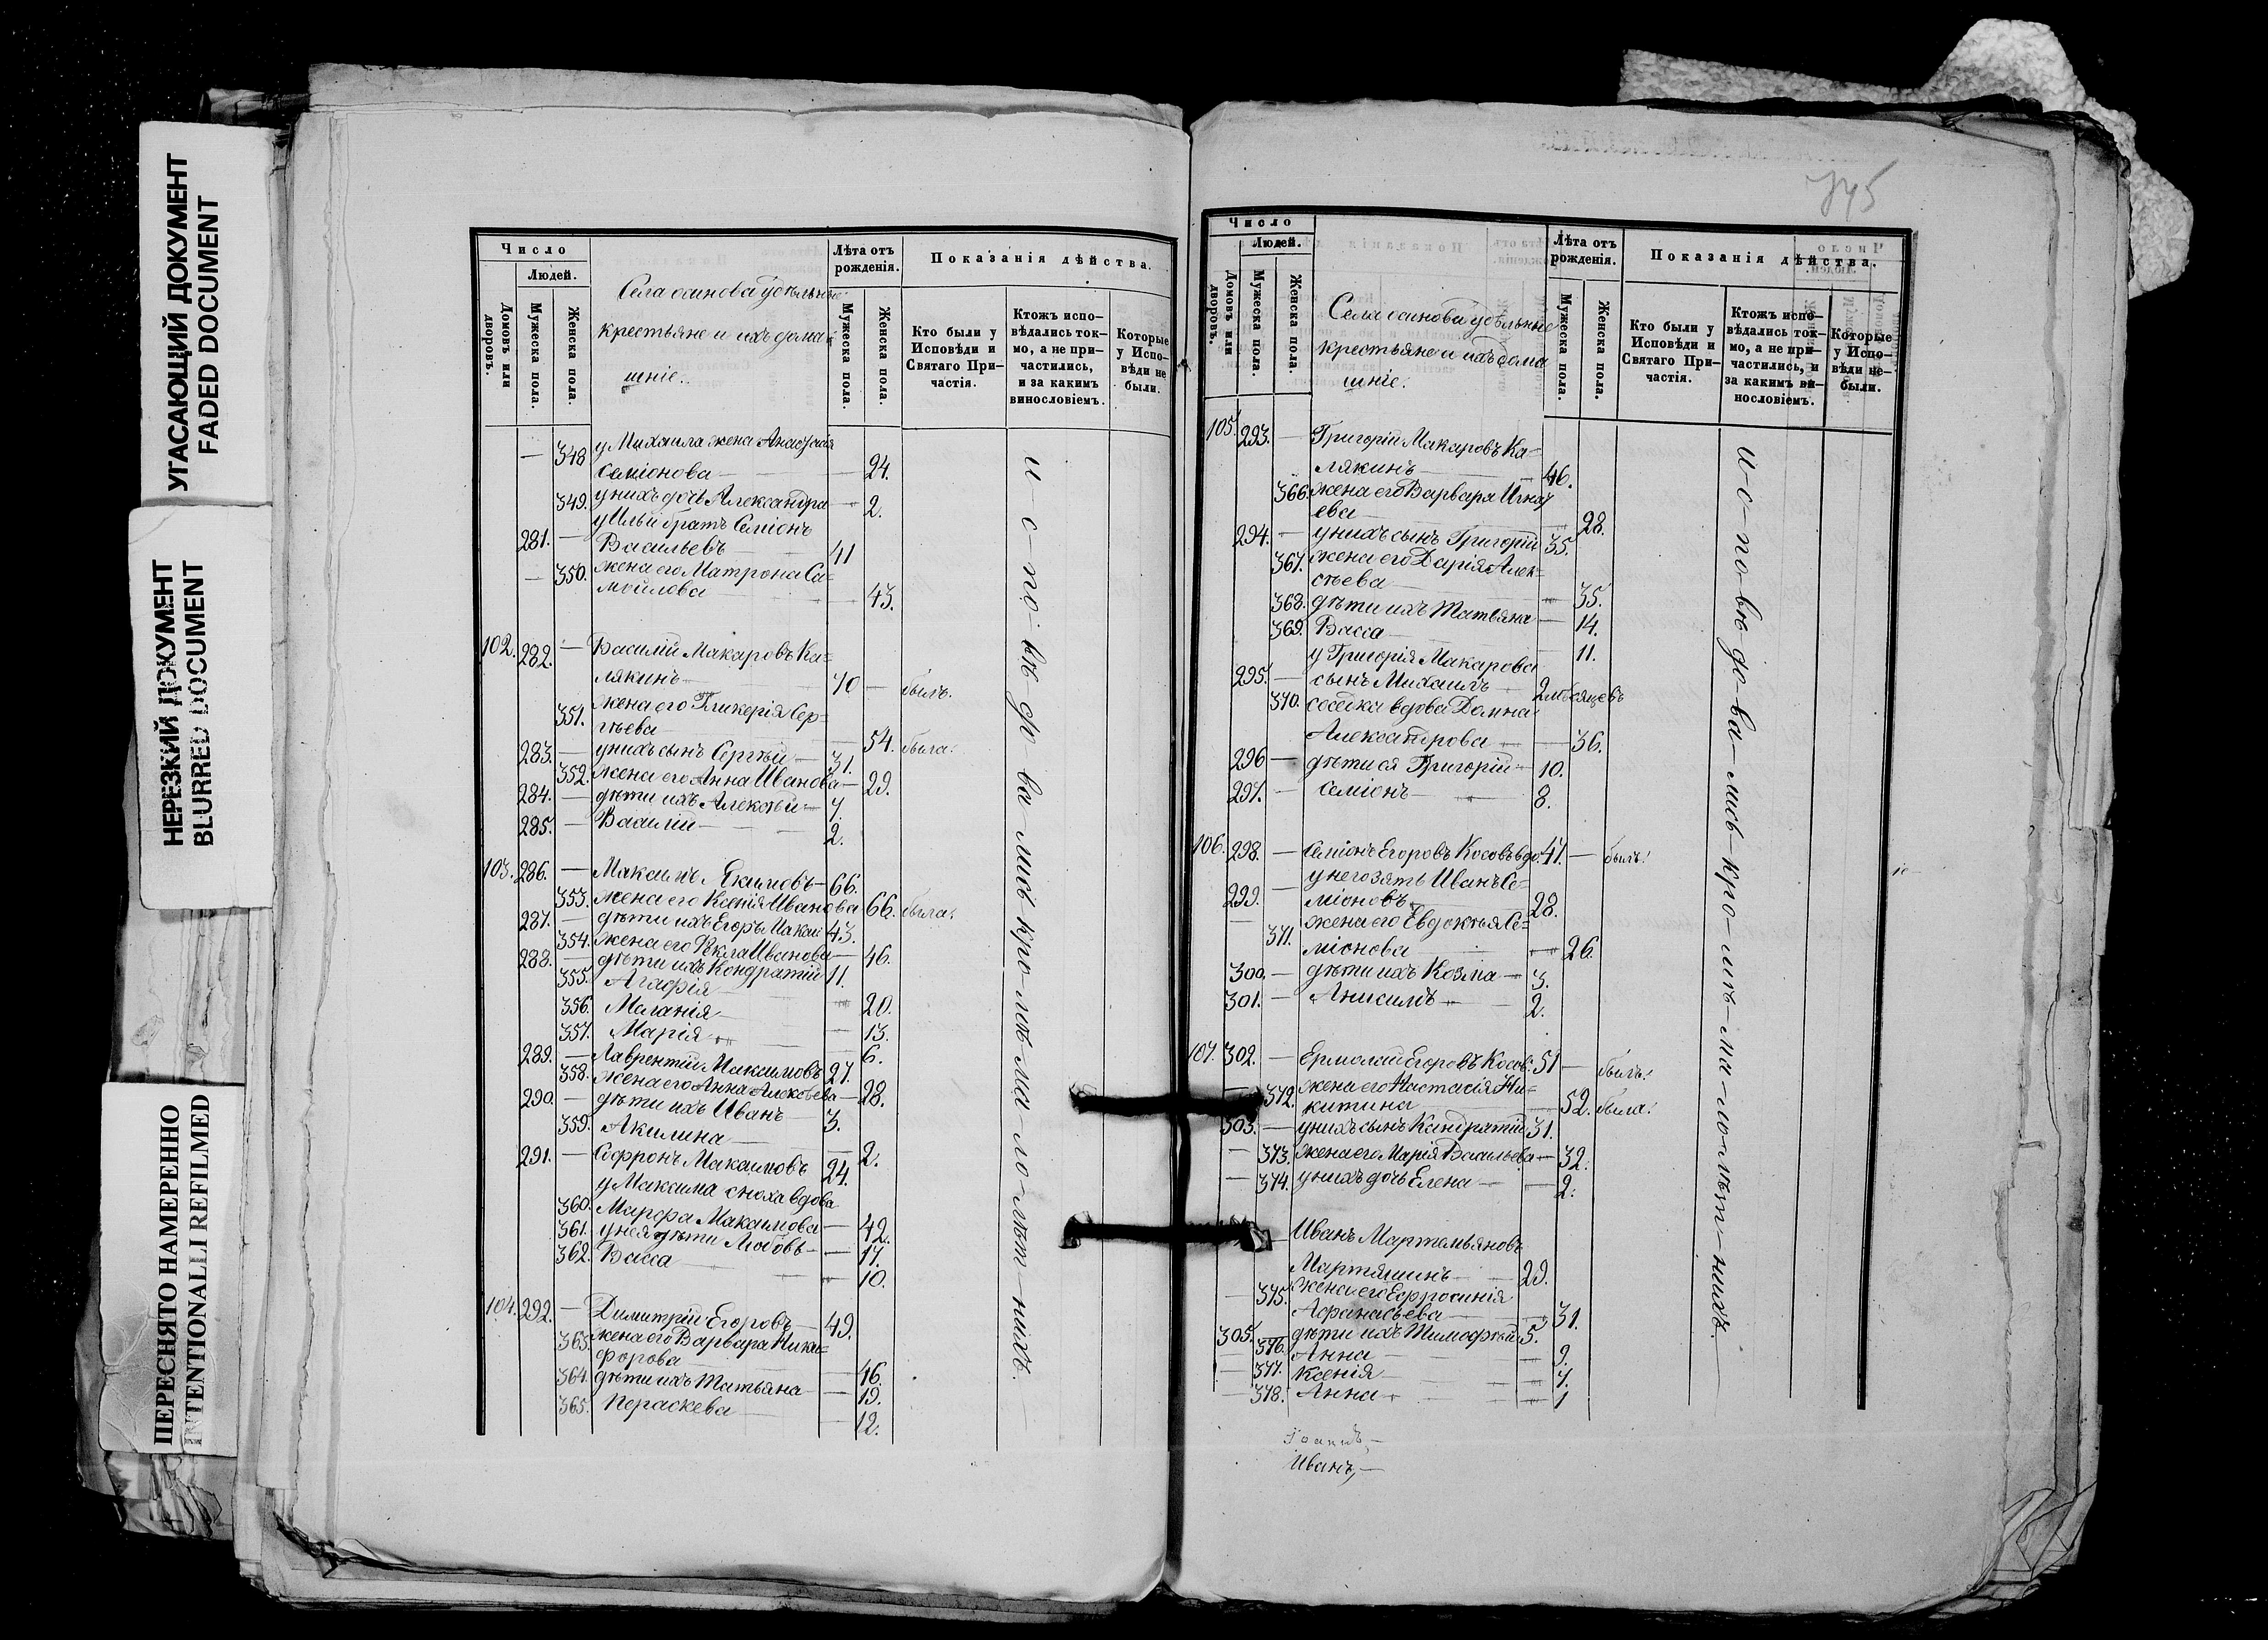 УГАСАЮЩИЙ ДОКУМЕНТ
FADED DOCUMENT
НЕРЕЗКИЙ ДОКУМЕНТ
BLURRED DOCUMENT
ПЕРЕСНЯТО НАМЕРЕННО
INTENTIONALLI REFILMED
Число
Людей.
Домовъ или дворовъ.
Мужеска пола.
Женска пола.
Села осинова удѣльные
крестьяне и ихъ дома
шніе.
Лѣта отъ рожденія.
Мужеска пола.
Женска пола.
Показанія дѣйства.
Кто были у Исповѣди и Святаго При-
частія.
Ктожъ испо-
вѣдались ток-
мо, а не при-
частились,
и за какимъ
винословіемъ.
Которые
у Испо-
вѣди не
были.
— 348 у Михаила жена Анастасія
Семіонова — 24.
349. у нихъ дочь Александра — 2.
у Ильи братъ Семіонъ
281. — Васильевъ — 41
— 350. жена его Матрона Са=
мойлова — 43.
102. 282. — Василій Макаровъ Ка=
лякинъ — 70 — былъ.
351. жена его Гликерія Сер=
гѣева — 54. была.
283. — у нихъ сынъ Сергѣй — 31.
352. жена его Анна Иванова — 29.
284. — дѣти ихъ Алексѣй — 7.
285. — Василій — 2.
103. 286. — Максимъ Якимовъ — 66.
353. жена его Ксенія Иванова 66. была.
287. — дѣти ихъ Егоръ Макси 43.
354. жена его Ѳекла Иванова — 46.
288. — дѣти ихъ Кондратій 11.
355. Агафія — 20.
356. Меланія — 13.
357. Марія — 6.
289. — Лаврентій Максимовъ 27.
358. жена его Анна Алексѣева — 28.
290. — дѣти ихъ Иванъ 3.
359. Акилина — 2.
291. — Софронъ Максимовъ 24.
у Максима сноха вдова
360. Марфа Максимова — 42.
361. у нея дѣти Любовь — 17.
362. Васса — 10.
104. 292. — Димитрій Егоровъ — 49.
363. жена его Варвара Ники=
форова — 46.
364. дѣти ихъ Татьяна — 19.
365. Пераскева — 12.
и-с-по-вѣ-до-ва-лись-кро-мѣ-ма-ло-лѣт-нихъ.
345
Число
Людей.
Домовъ или дворовъ.
Мужеска пола.
Женска пола.
Села осинова удѣльные
крестьяне и ихъ дома
шніе.
Лѣта отъ рожденія.
Мужеска пола.
Женска пола.
Показанія дѣйства.
Кто были у Исповѣди и Святаго При-
частія.
Ктожъ испо-
вѣдались ток-
мо, а не при-
частились, и
за какимъ ви-
нословіемъ.
Которые
у Испо-
вѣди не-
были.
105. 293. — Григорій Макаровъ Ка-
лякинъ — 46.
366. жена его Варвара Игнат
ева — 28.
294. — у нихъ сынъ Григорій 35.
367. жена его Дарія Алек=
сѣева — 35.
368. дѣти ихъ Татьяна — 14.
369. Васса — 11.
у Григорія Макарова
295. — сынъ Михаилъ — 2 мѣсяцевъ
370. соседка вдова Домна
Александрова — 36.
296 — дѣти ея Григорій 10.
297. — Семіонъ — 8.
106. 298. — Семіонъ Егоровъ Косовъ вдо. 47. — былъ.
у него зять Иванъ Се=
299. — міоновъ 28.
371. жена его Евдокія Се=
міонова — 26.
300. — дѣти ихъ Козма — 3.
301. — Анисимъ — 2.
107. 302. — Ермолай Егоровъ Косов. 51 — былъ.
372. жена его Настасія Ни=
китина — 52. была.
303. — у нихъ сынъ Кондратій 31.
— 373. жена его Марія Васильева — 32.
— 374. у нихъ дочь Елена — 2.
— Иванъ Мартемьяновъ
Мартяшинъ — 29.
— 375. жена его Ефросинія
Афанасьева — 31.
305. дѣти ихъ Тимофей 5.
— 376. Анна — 9.
— 377. Ксенія — 7.
— 378. Анна — 1
и-с-по-вѣ-до-ва-лись-кро-мѣ-ма-ло-лѣт-нихъ.
Иванъ, —